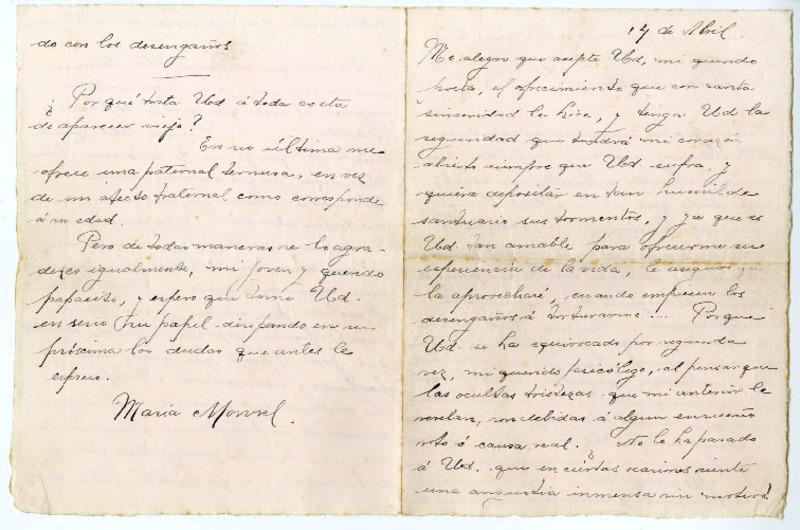 14 de Abril.
Me alegro que acepte Ud, mi querido
poeta, el ofrecimiento que con tanta
sinseridad le hice, y tenga Ud la
seguridad que tendrá mi corazón
abierto siempre que Ud. sufra, y
quiera depositar en tan humilde
santuario sus tormentos, y ya que es
Ud. tan amable para ofrecerme su
esperiencia de la vida, le aseguro que
la aprovecharé, cuando empiecen los
desengaños á torturarme... Porque
Ud. se ha equivocado por segunda
vez, mi querido psicólogo, al pensar que
las ocultas tristezas que mi anterior le
revelan, son debidas á algun ensueño
roto ó causa real. ¿No le ha pasado
á Ud. que en ciertas ocasiones siente
una angustia inmensa sin motivos?
do con los desengaños
¿Por qué trata Ud á toda costa
de aparecer viejo?
En su última me
ofrece una paternal ternura, en vez
de un afecto fraternal como corresponde
á su edad.
Pero de todas maneras se lo agra-
dezco igualmente, mi joven y querido
papacito, y espero que tome Ud.
en serio su papel disipando en su
próxima las dudas que antes le
espreso.
María Monvel.